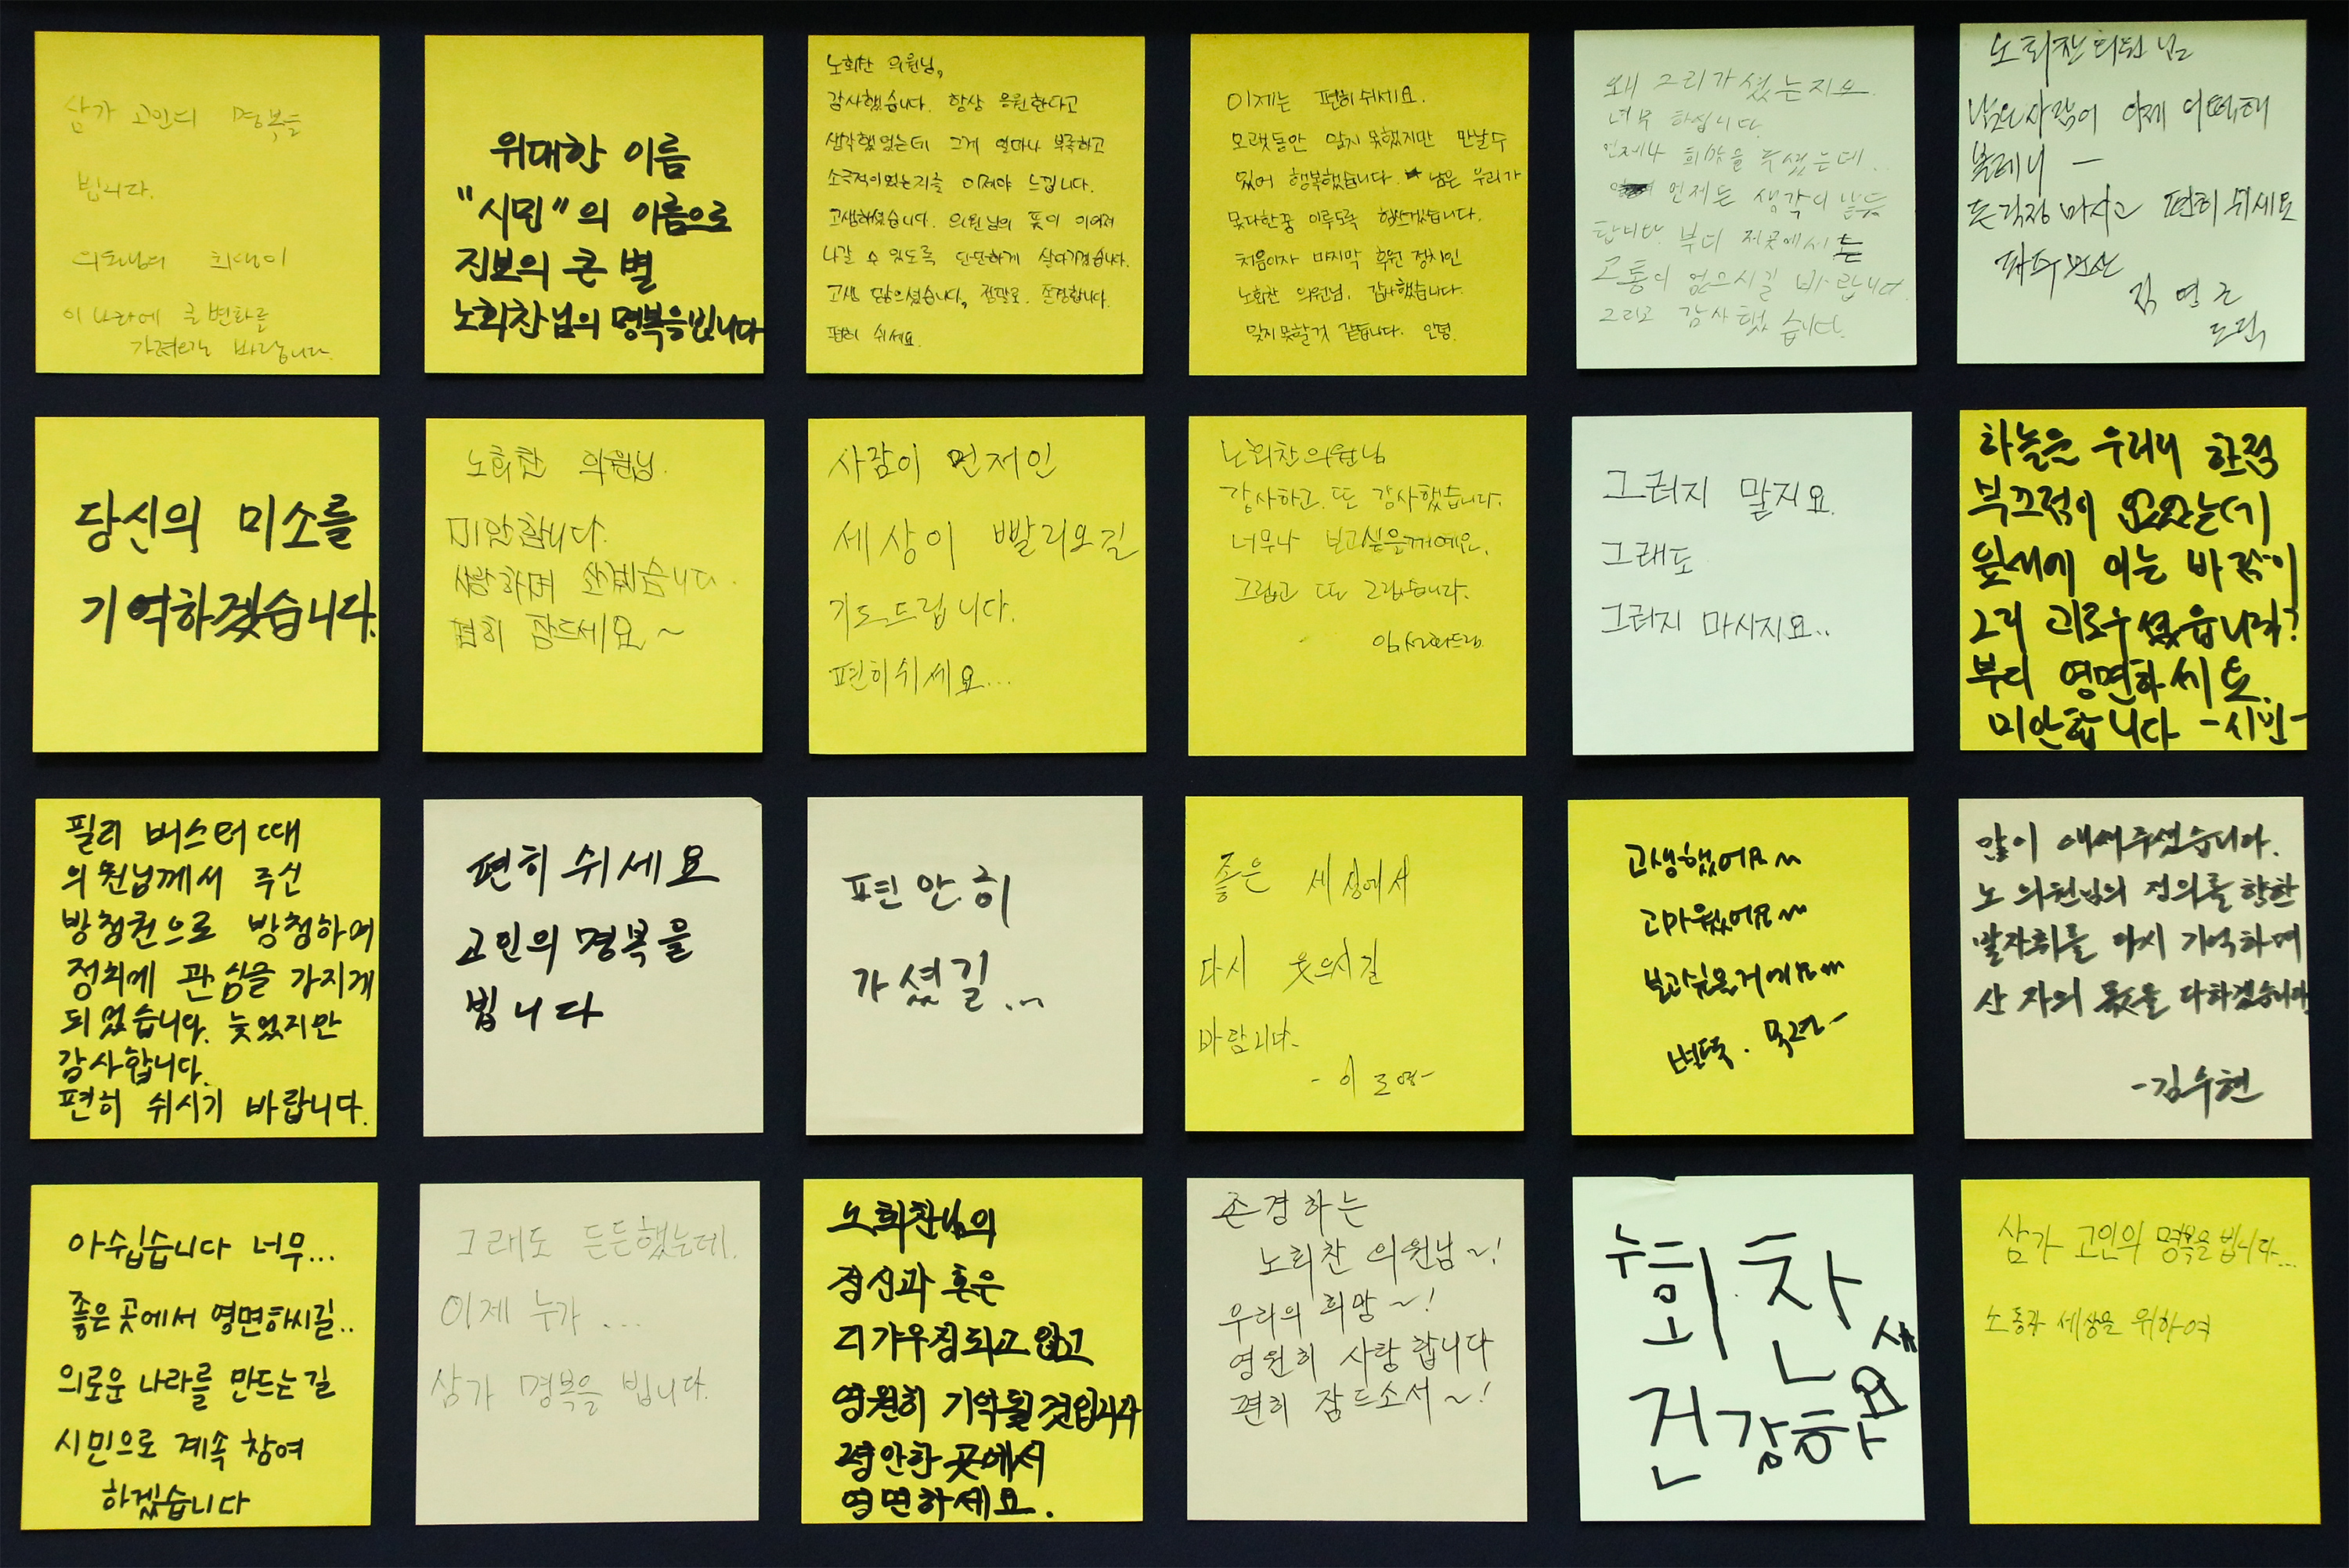 삼가 고인의 명복을
빕니다.
의원님의 희생이
이 나라에 큰 변화를
가져오길 바랍니다.
위대한 이름
"시민"의 이름으로
진보의 큰 별
노회찬님의 명복을빕니다
노회찬 의원님,
감사했습니다. 항상 응원한다고
생각했었는데 그게 얼마나 부족하고
소극적이었는지를 이제야 느낍니다.
고생하셨습니다. 의원님의 뜻이 이어져
나갈 수 있도록 단단하게 살아가겠습니다.
고생 많으셨습니다, 정말로. 존경합니다.
편히 쉬세요.
이제는 편히쉬세요.
오랫동안 알지 못했지만 만날수
있어 행복했습니다. 남은 우리가
못다한꿈 이루도록 힘쓰겠습니다.
처음이자 마지막 후원 정치인
노회찬 의원님. 감사했습니다.
잊지못할거 같습니다. 안녕.
왜 그리가셨는지요.
너무 하십니다.
언제나 희망을 주셨는데...
언제든 생각이 날듯
합니다. 부디 저곳에서는
고통이 없으시길 바랍니다.
그리고 감사했습니다.
노회찬의원님
남은사람이 이제 어떡해
볼테니 —
든 걱정 마시고 편히쉬세요
파주 김영근
드림
당신의 미소를
기억하겠습니다.
노회찬 의원님.
미안합니다.
사랑하며 살겠습니다.
편히 잠드세요~
사람이 먼저인
세상이 빨리오길
기도드립니다.
편히쉬세요...
노회찬의원님
감사하고. 또 감사했습니다.
너무나 보고싶을꺼예요.
그립고 또 그립습니다.
임선화드림
그러지 말지요.
그래도
그러지 마시지요..
하늘은 우러러 한점
부끄럼이 없었는데
잎새에 이는 바람이
그리 괴로우셨습니까?
부디 영면하세요.
미안합니다 -시민-
필리 버스터때
의원님께서 주신
방청권으로 방청하여
정치에 관심을 가지게
되었습니다. 늦었지만
감사합니다.
편히 쉬시기 바랍니다.
편히 쉬세요
고인의 명복을
빕니다
편안히
가셨길...
좋은 세상에서
다시 웃으시길
바랍니다.
- 이로영-
고생했어요~
고마웠어요~
보고싶을거예요~
많이 애써주셨습니다.
노 의원님의 정의를향한
발자취를 다시 기억하며
산 자의 몫을 다하겠습니다
-김수현
아쉽습니다 너무...
좋은곳에서 영면하시길..
의로운 나라를 만드는길
시민으로 계속 참여
하겠습니다
그래도 든든했는데.
이제 누가 ...
삼가 명복을 빕니다.
노회찬님의
정신과 혼은
더 가우침되고 않고
영원히 기억될것입니다
평안한 곳에서
영면하세요.
존경하는
노회찬 의원님~!
우리의 희망~!
영원히 사랑합니다
편히 잠드소서~!
누회찬
건강하세요
삼가 고인의 명복을 빕니다...
노동자 세상을 위하여